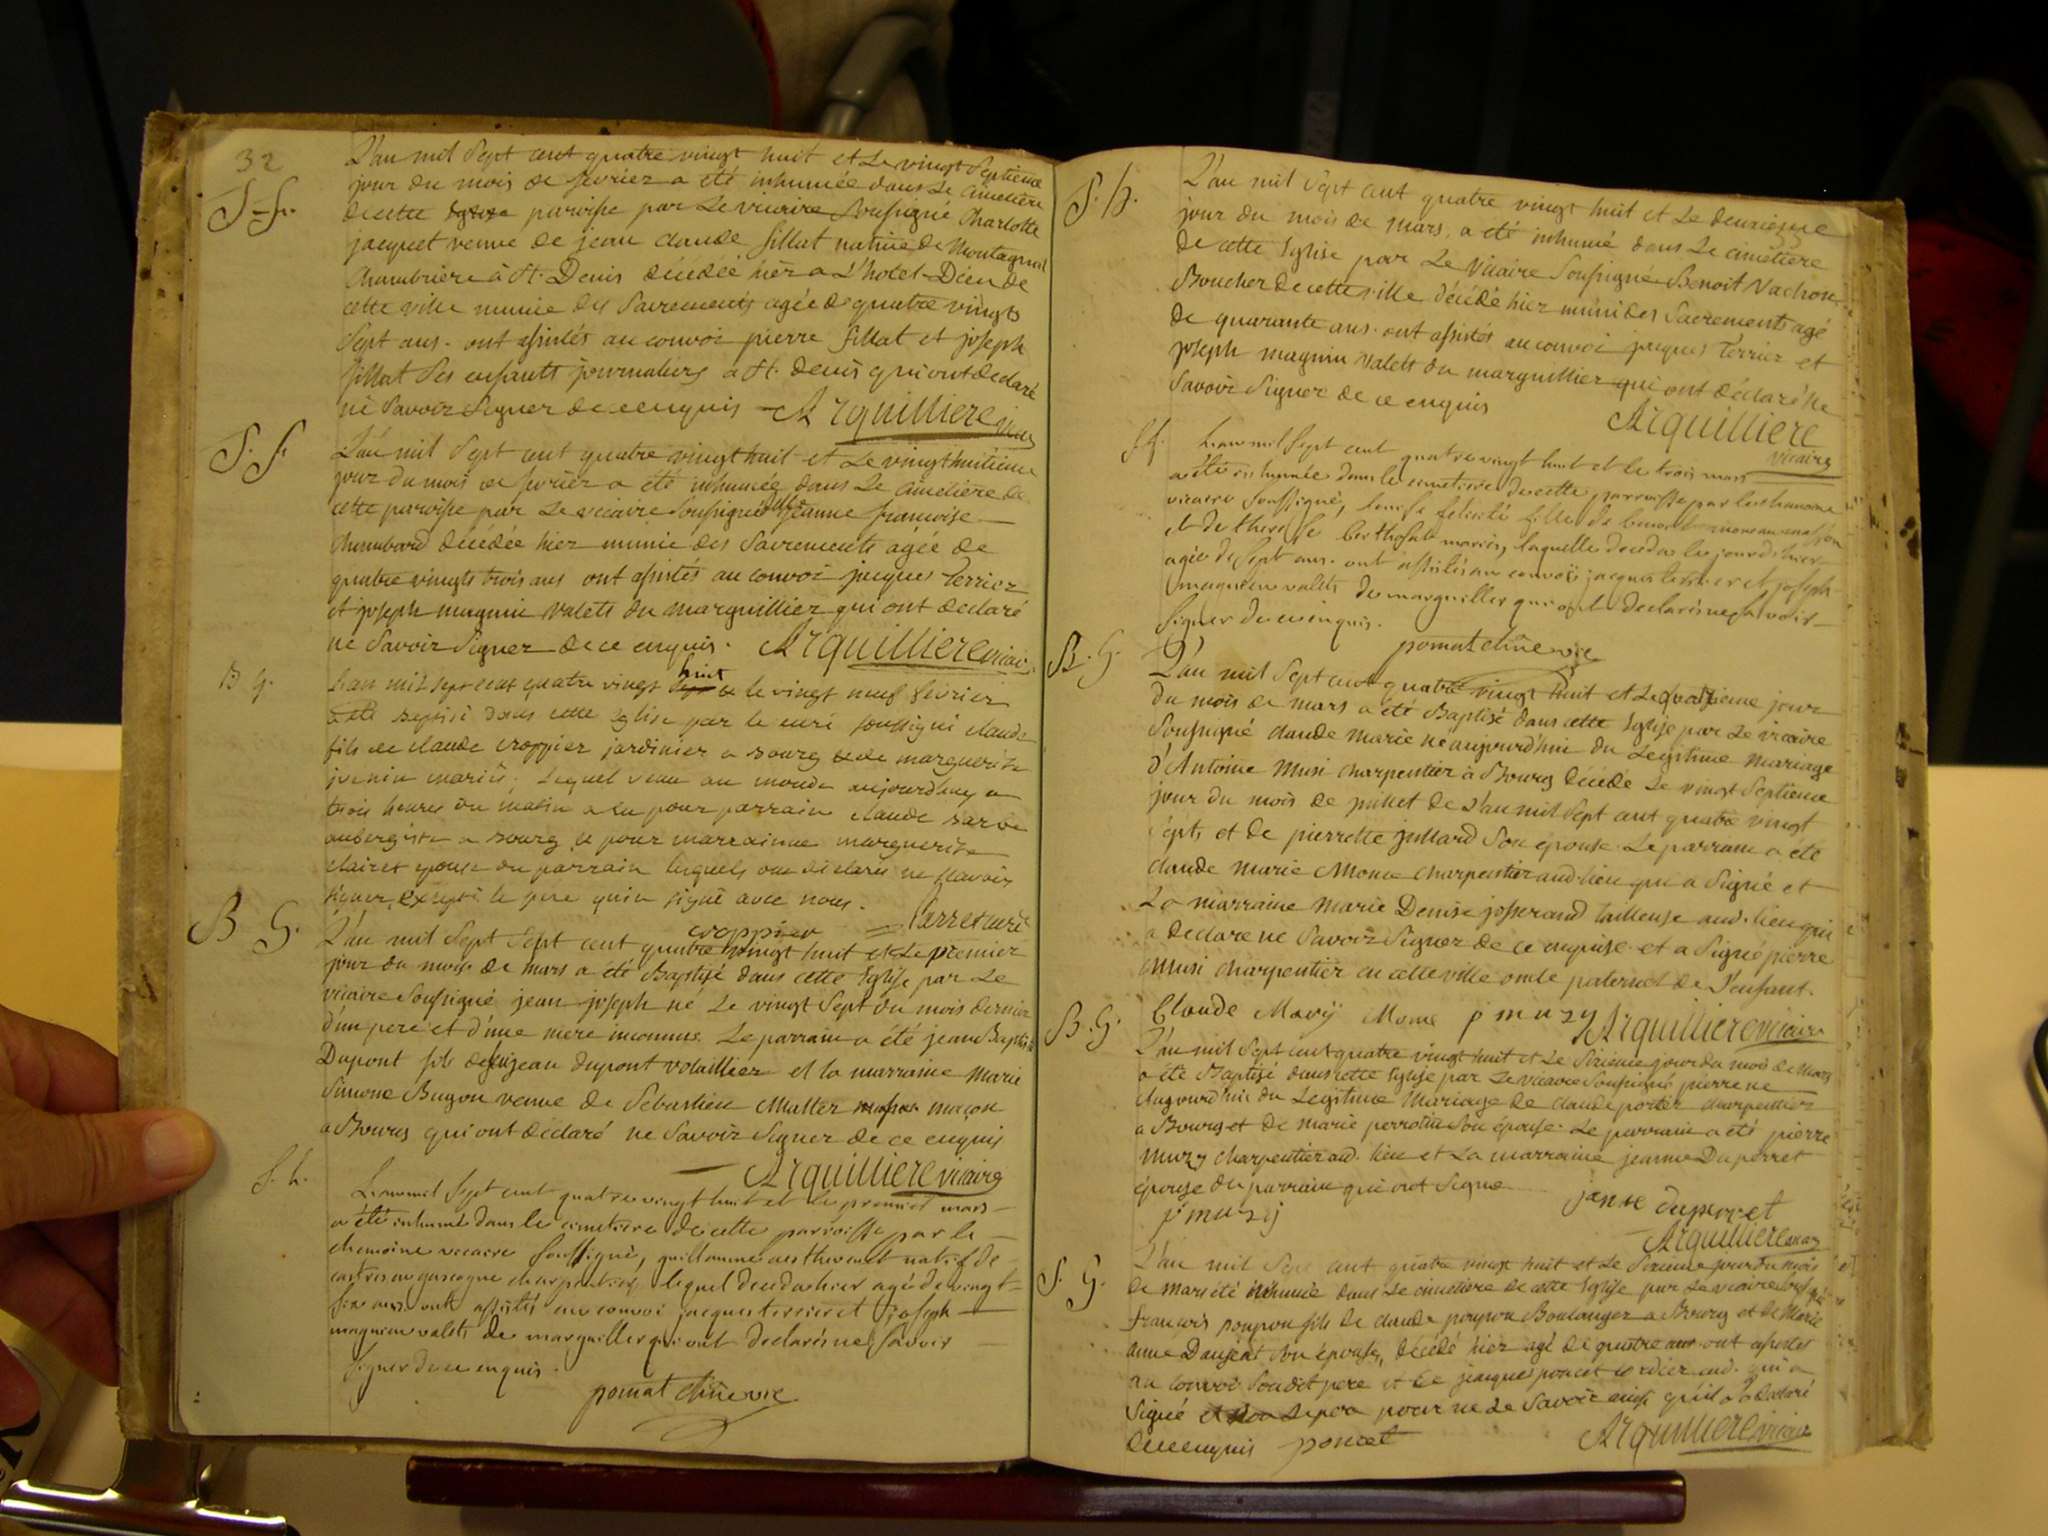 32
S. f.
L'an mil Sept cent quatre vingt huit et Le vingt Septieme
jour du mois de fevrier a été inhumée dans Le Cimetiere
de cette paroisse par Le vicaire Soussigné Charlotte
jacquet veuve de jean claude fillat native de Montagnat
Chambriere à St. Denis décédée hier a L'hotel-Dieu de
cette ville munie des Sacrements agée de quatre vingts
Sept ans. ont assistés au convoi pierre fillat et joseph
fillat Ses enfants journaliers a St. denis qui ont declaré
ne Savoir Signer de ce enquis Arquilliere vicaire
S. f.
L'an mil Sept cent quatre vingt huit et Le vingt huitieme
jour du mois de fevrier a été inhumée dans Le Cimetiere de
cette paroisse par Le vicaire Soussigné Dlle jeanne françoise
Chambard décédée hier munie des Sacrements agée de
quatre vingts trois ans ont assistés au convoi jacques Terrier
et joseph magnin valets du marguillier qui ont declaré
ne Savoir Signer de ce enquis. Arquilliere vicaire
B G.
L'an mil sept cent quatre vingt huit & le vingt neuf fevrier
a été baptisé dans cette eglise par le curé soussigné claude
fils de claude croppier jardinier a bourg & de marguerite
juenin mariés; Lequel venu au monde aujourdhuy a
trois heures du matin a eu pour parrain claude
aubergiste a bourg & pour marrainne marguerite
clairet epouse du parrain lesquels ont déclaré ne sçavoir
signer, excepté le pere qui a signé avec nous.
croppier curé
B G.
L'an mil Sept Sept cent quatre vingt huit et Le premier
jour du mois de mars a été Baptisé dans cette Eglise par Le
vicaire Soussigné jean joseph né Le vingt Sept du mois dernier
d'un pere et d'une mere inconnus. Le parrain a été jean Baptiste
Dupont fils de feu jean dupont volaillier et la marraine Marie
Simone Bugon veuve de Sebastien Matter maçon
a Bourg qui ont déclaré ne Savoir Signer de ce enquis
Arquilliere vicaire
S. h.
L'an mil Sept cent quatre vingt huit et le premier mars
a été inhumé dans le cimetiere de cette parroisse par le
chanoine vicaire soussigné, guillaume natif de
castres en gascogne charpentier lequel deceda hier agé de vingt
ans. ont assistés au convoi jacques terrier et joseph
magnien valets de marguiller qui ont declarés ne savoir
signer de ce enquis.
pomat chne vre
S. h.
L'an mil Sept cent quatre vingt huit et Le deuxieme
jour du mois de mars, a été inhumé dans Le cimetiere
de cette Eglise par Le Vicaire Soussigné Benoit Vachon
Boucher de cette ville décédé hier muni des Sacrements agé
de quarante ans. ont assistés au convoi jacques Terrier et
joseph magnin valets du marguillier qui ont déclaré ne
Savoir Signer de ce enquis
Arquilliere
vicaire
S f.
L'an mil Sept cent quatre vingt huit et le trois mars
a été inhumée dans le cimetiere de cette parroisse par le chanoine
vicaire soussigné, louise felicité fille de
et de therese Berthollet mariés, laquelle deceda le jour d'hier
agée de sept ans. ont assistés au convoi jacques terrier et joseph
magnien valets de marguiller qui ont declarés ne savoir
signer de ce enquis.
pomat chne vre
B. G.
L'an mil Sept cent quatre vingt huit et Le quatrieme jour
du mois de mars a été Baptisé dans cette Eglise par Le vicaire
Soussigné claude marie né aujourd'hui du Legitime mariage
d'Antoine Musi charpentier à Bourg décédé Le vingt Septieme
jour du mois de juillet de L'an mil Sept cent quatre vingt
Sept, et de pierrette jullard Son épouse. Le parrain a été
claude marie Mome charpentier aud. lieu qui a Signé et
La marraine Marie Denise josserand tailleuse aud. lieu qui
a declaré ne Savoir Signer de ce enquise. et a Signé pierre
Musi charpentier en cette ville oncle paternel de L'enfant.
Claude Mary Mome p muzy Arquilliere vicaire
B. G.
L'an mil Sept cent quatre vingt huit et Le Sixieme jour du mois de Mars
a été Baptisé dans cette Eglise par Le vicaire Soussigné pierre né
Aujourd'hui du Legitime Mariage de claude portier charpentier
a Bourg et de marie perrotin Son épouse. Le parrain a été pierre
Muzy charpentier aud. lieu et La marraine jeanne Duperret
épouse du parrain qui ont Signé
p muzy
janne duperret
Arquilliere vicaire
S. G.
L'an mil Sept cent quatre vingt huit et Le Sixieme jour du mois
de Mars été inhumé dans Le cimetiere de cette Eglise par Le vicaire Soussigné
François poupon fils de claude poupon Boulanger a Bourg et de Marie
anne Son épouse, décédé hier agé de quatre ans ont assistés
au convoi Son dit pere et Sr jacques poncet aud. qui a
Signé et non Le pere pour ne Le Savoir ainsi qu'il a declaré
de ce enquis poncet Arquilliere vicaire